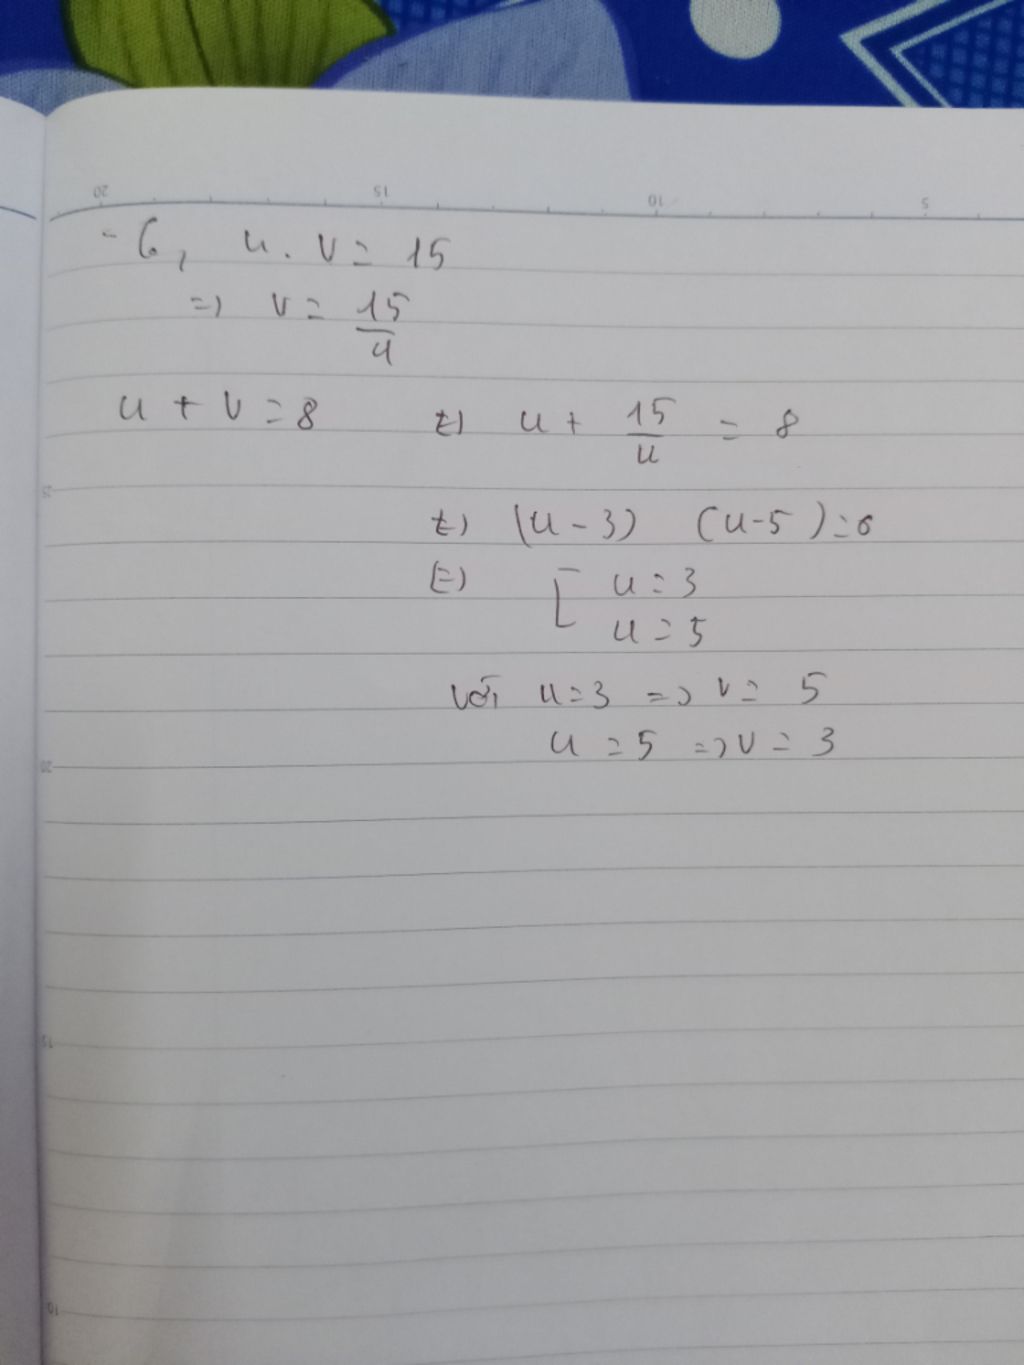 20 15 10 5
- 6, u . v = 15
=> v = 15/u
u + v = 8 <=> u + 15/u = 8
<=> (u - 3) (u - 5) = 0
<=> [ u = 3
u = 5
với u = 3 => v = 5
u = 5 => v = 3
25
20
15
10